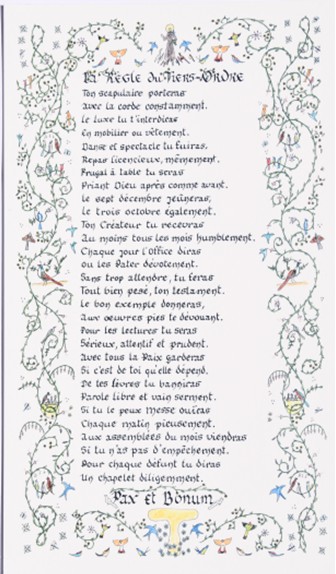 La Règle du Tiers-Ordre
Ton scapulaire porteras
avec la corde constamment.
Le luxe tu t'interdiras
En mobilier ou vêtement.
Danse et spectacle tu fuiras,
Repas licencieux, mêmement.
Frugal à table tu seras
Priant Dieu après comme avant.
Le sept décembre jeûneras,
Le trois octobre également.
Ton Créateur tu recevras
Au moins tous les mois humblement.
Chaque jour l'Office diras
ou les Pater dévotement.
Sans trop attendre, tu feras
Tout bien pesé, ton testament.
Le bon exemple donneras,
Aux oeuvres pies te dévouant.
Pour les lectures tu seras
Sérieux, attentif et prudent.
Avec tous la Paix garderas
Si c'est de toi qu'elle dépend.
De tes lèvres tu banniras
Parole libre et vain serment.
Si tu le peux Messe ouïras
Chaque matin pieusement.
Aux assemblées du mois viendras
Si tu n'as pas d'empêchement.
Pour chaque défunt tu diras
Un chapelet diligemment.
Pax et Bonum